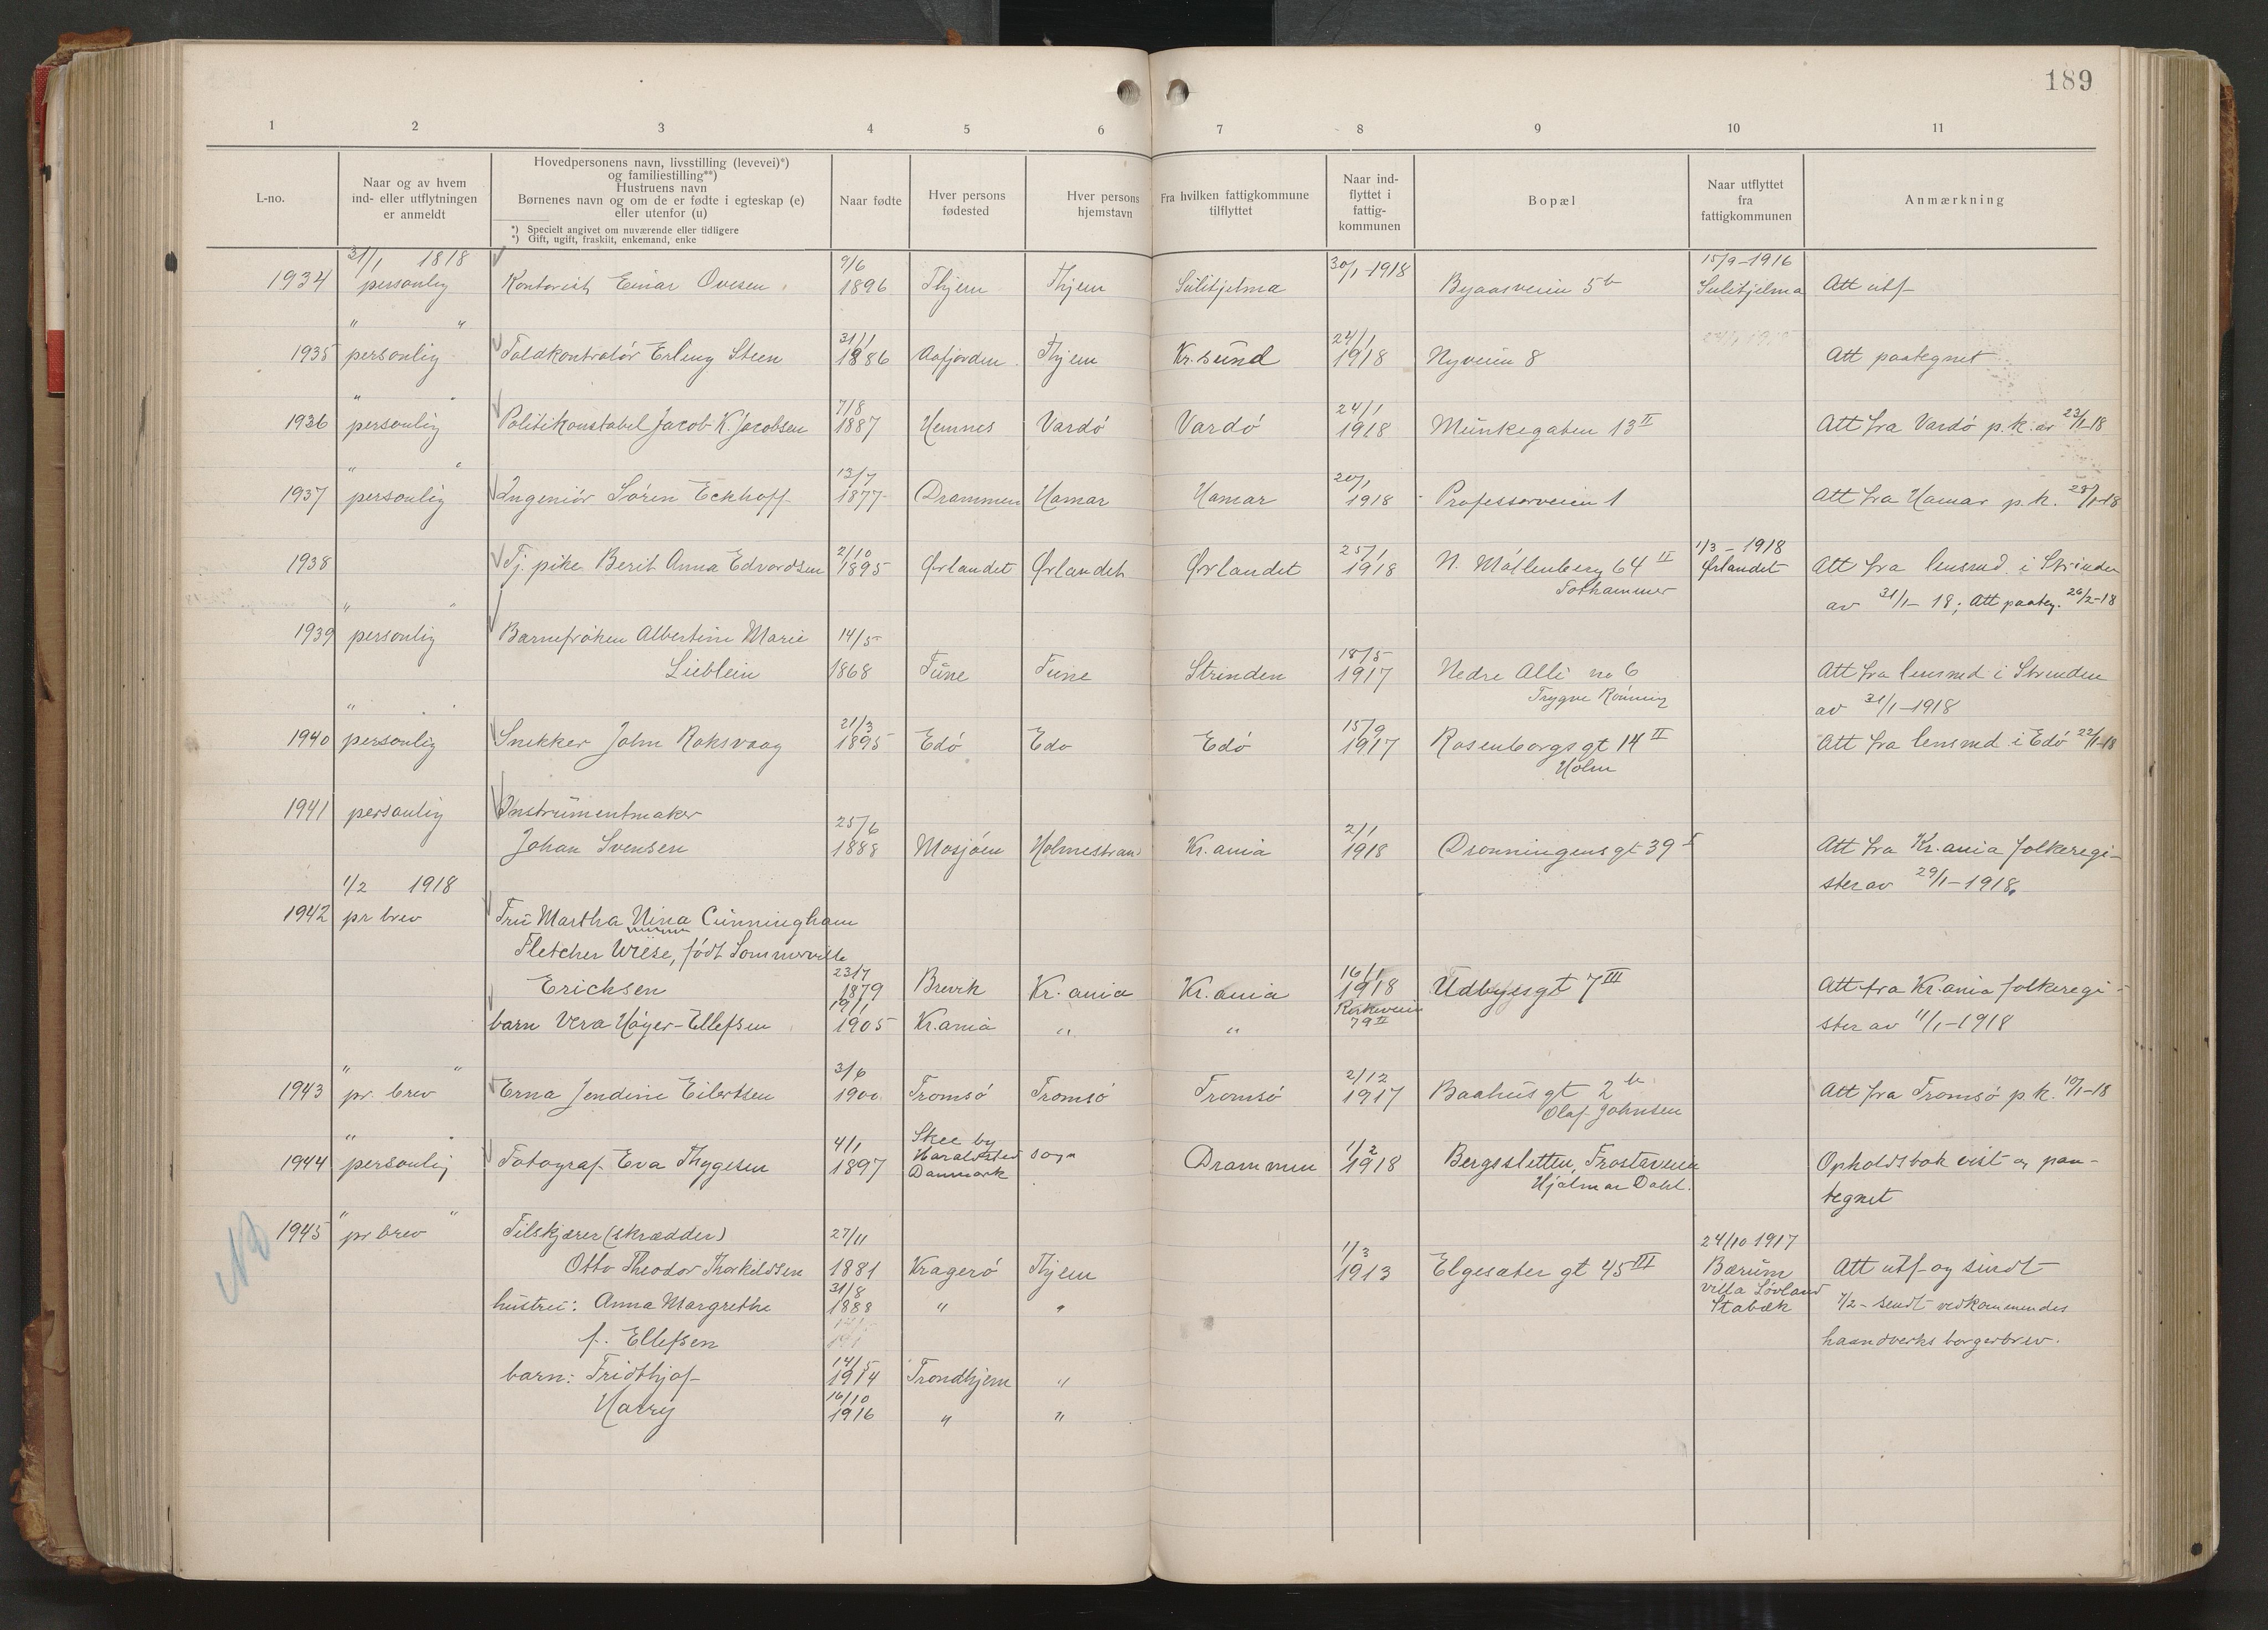 189
1 2 3 4 5 6 7 8 9 10 11
L-no.
Naar og av hvem
ind- eller utflytningen
er anmeldt
Hovedpersonens navn, livsstilling (levevei)*)
og familiestilling**)
Hustruens navn
Børnenes navn og om de er fødte i egteskap (e)
eller utenfor (u)
*) Specielt angivet om nuværende eller tidligere
*) Gift, ugift, fraskilt, enkemand, enke
Naar fødte
Hver persons
fødested
Hver persons
hjemstavn
Fra hvilken fattigkommune
tilflyttet
Naar ind-
flyttet i
fattig-
kommunen
Bopæl
Naar utflyttet
fra
fattigkommunen
Anmærkning
31/1 1818 9/6 30/1-1918 15/9-1916
1934 personlig Kontorist Einar Ovesen 1896 Thjem Thjem Sulitjelma Byaasveien 5b Sulitjelma Att utf
" " 31/1 24/1
1935 personlig Toldkontrolør Erling Steen 1886 Aafjorden Thjem Kr.sund 1918 Nyveien 8 Att paategnet
" " 7/8 24/1
1936 personlig Politikonstabel Jacob K. Jacobsen 1887 Hemnes Vardö Vardö 1918 Munkegaten 13 II Att fra Vardö p.k. av 23/1-18
" " 13/7 20/1
1937 personlig Ingeniör Sören Eckhoff 1877 Drammen Hamar Hamar 1918 Professorveien 1 Att fra Hamar p.k. 28/1-18
2/10 25/1 1/3-1918
1938 Tj. pike Berit Anna Edvardsen 1895 Ørlandet Ørlandet Ørlandet 1918 N. Möllenberg 64 II Ørlandet Att fra lensmd. i Strinden
Solhammer av 31/1-18; Att paateg. 26/2-18
" "
1939 personlig Barnefröken Albertine Marie 14/5
Lieblein 1868 Tune Tune Strinden 18/5 1917 Nedre Alle no 6 Att fra lensmd i Strinden
Trygve Rönning av 31/1-1918
" " 21/3 15/9
1940 personlig Snekker John Roksvaag 1895 Edö Edö Edö 1917 Rosenborgs gt 14 II Att fra lensmd i Edö 22/1-18
Holm
1941 personlig Instrumentmaker
Johan Svensen 25/6 1888 Mosjöen Holmestrand Kr.ania 2/1 1918 Dronningensgt 39 I Att fra Kr.ania folkeregi-
ster av 29/1-1918.
1/2 1918
1942 pr brev Fru Martha Nina Cunningham
Fletcher Wiese, födt Sommerville
Erichsen 23/7 1879 Brevik Kr.ania Kr.ania 16/1 1918 Udbyesgt 7 III Att fra Kr.ania folkeregi-
barn Vera Höyer-Ellefsen 19/1 1905 Kr.ania " " Kirkeveien 79 II ster av 11/1-1918
" " 3/6 2/12
1943 pr. brev Erna Jendine Eilertsen 1900 Tromsö Tromsö Tromsö 1917 Baahus gt 2b Att fra Tromsö p.k. 10/1-18
Olaf Johnsen
" "
1944 personlig Fotograf Eva Thygesen 4/1 1897 Skee by
Haraldsted sogn
Danmark
Drammen 1/2 1918 Bergsletten, Frostaveien Opholdsbok vist og paa-
Hjalmar Dahl. tegnet
NB
" "
1945 pr brev Tilskjærer (skrædder) 27/11 24/10 1917
Otto Theodor Thorkildsen 1881 Kragerö Thjem 1/3 1913 Elgesæter gt 45 III Bærum Att utf og sendt
hustru: Anna Margrethe 31/8 1888 " " villa Lövland 7/2- sendt vedkommendes
Stabæk
f. Ellefsen haandverks borgerbrev.
barn: Fridthjof 14/5 1914 Trondhjem "
Harry 16/10 1916 " "